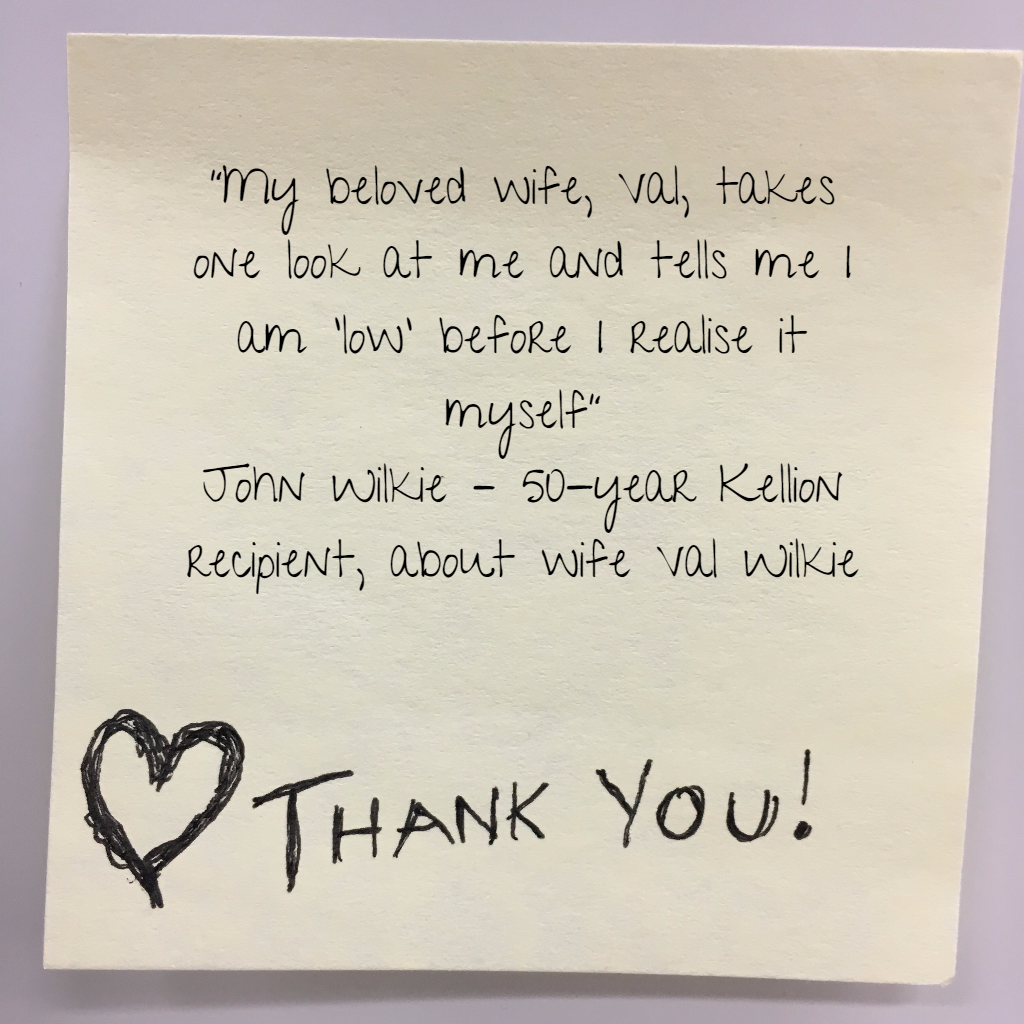 "My beloved wife, Val, takes
one look at me and tells me I
am 'low' before I realise it
myself"
John Wilkie - 50-year Kellion
recipient, about wife Val Wilkie
THANK YOU!